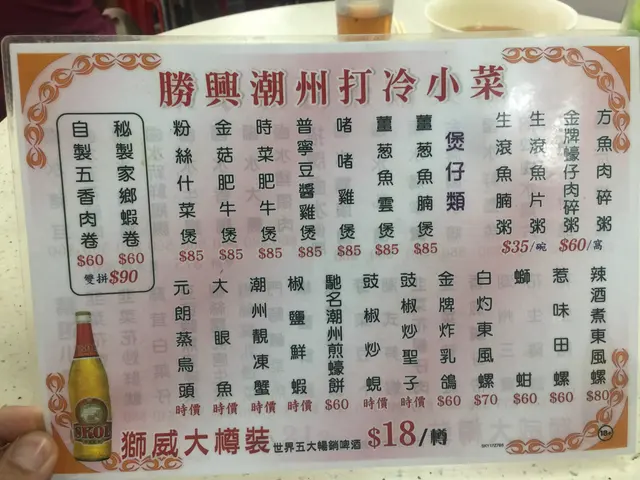 勝興潮州打冷小菜
方魚肉碎粥
金牌蠔仔肉碎粥
$60/窩
生滾魚片粥
生滾魚腩粥
$35/碗
煲仔類
薑葱魚腩煲 $85
薑葱魚雲煲 $85
啫啫雞煲 $85
普寧豆醬雞煲 $85
時菜肥牛煲 $85
金菇肥牛煲 $85
粉絲什菜煲 $85
秘製家鄉蝦卷 $60
自製五香肉卷 $60
雙拼$90
辣酒煮東風螺 $80
惹味田螺 $60
螄蚶 $60
白灼東風螺 $70
金牌炸乳鴿 $60
豉椒炒聖子 時價
豉椒炒蜆 時價
馳名潮州煎蠔餅 $60
椒鹽鮮蝦 時價
潮州靚凍蟹 時價
大眼魚 時價
元朗蒸烏頭 時價
SKOL
獅威大樽裝 世界五大暢銷啤酒 $18/樽